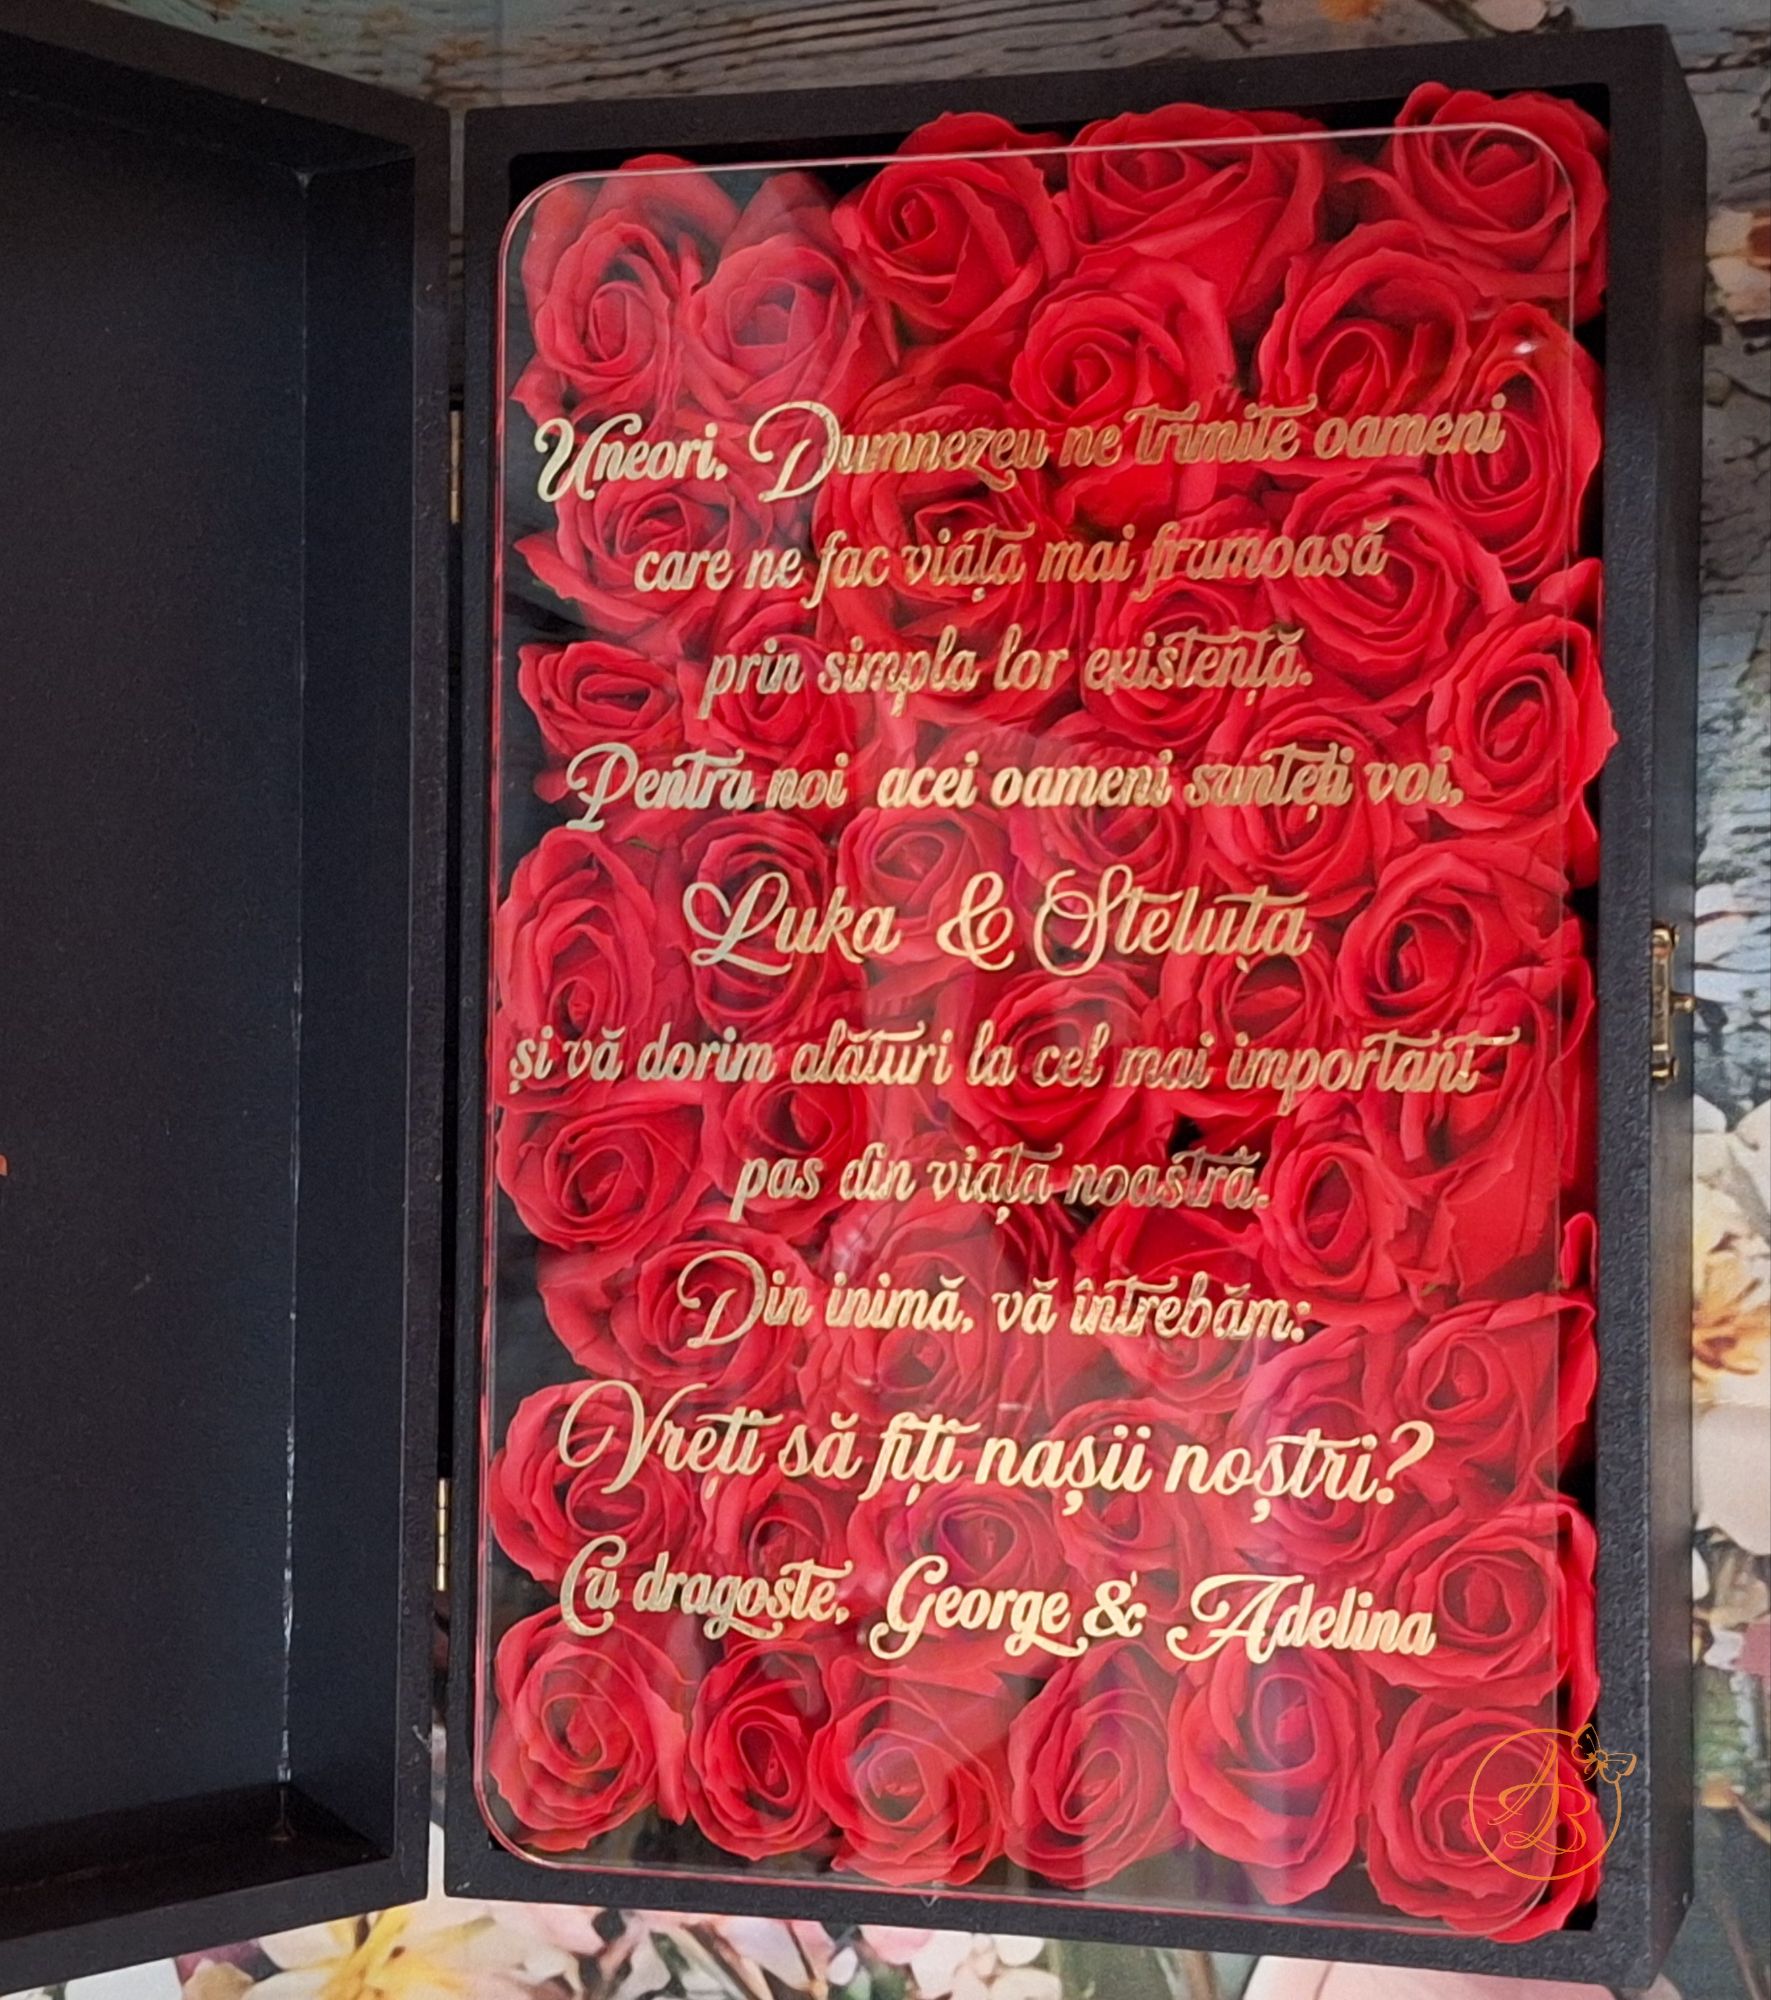 Uneori, Dumnezeu ne trimite oameni
care ne fac viața mai frumoasă
prin simpla lor existență.
Pentru noi acei oameni sunteți voi,
Luka & Steluța
și vă dorim alături la cel mai important
pas din viața noastră.
Din inimă, vă întrebăm:
Vreți să fiți nașii noștri?
Cu dragoste, George & Adelina